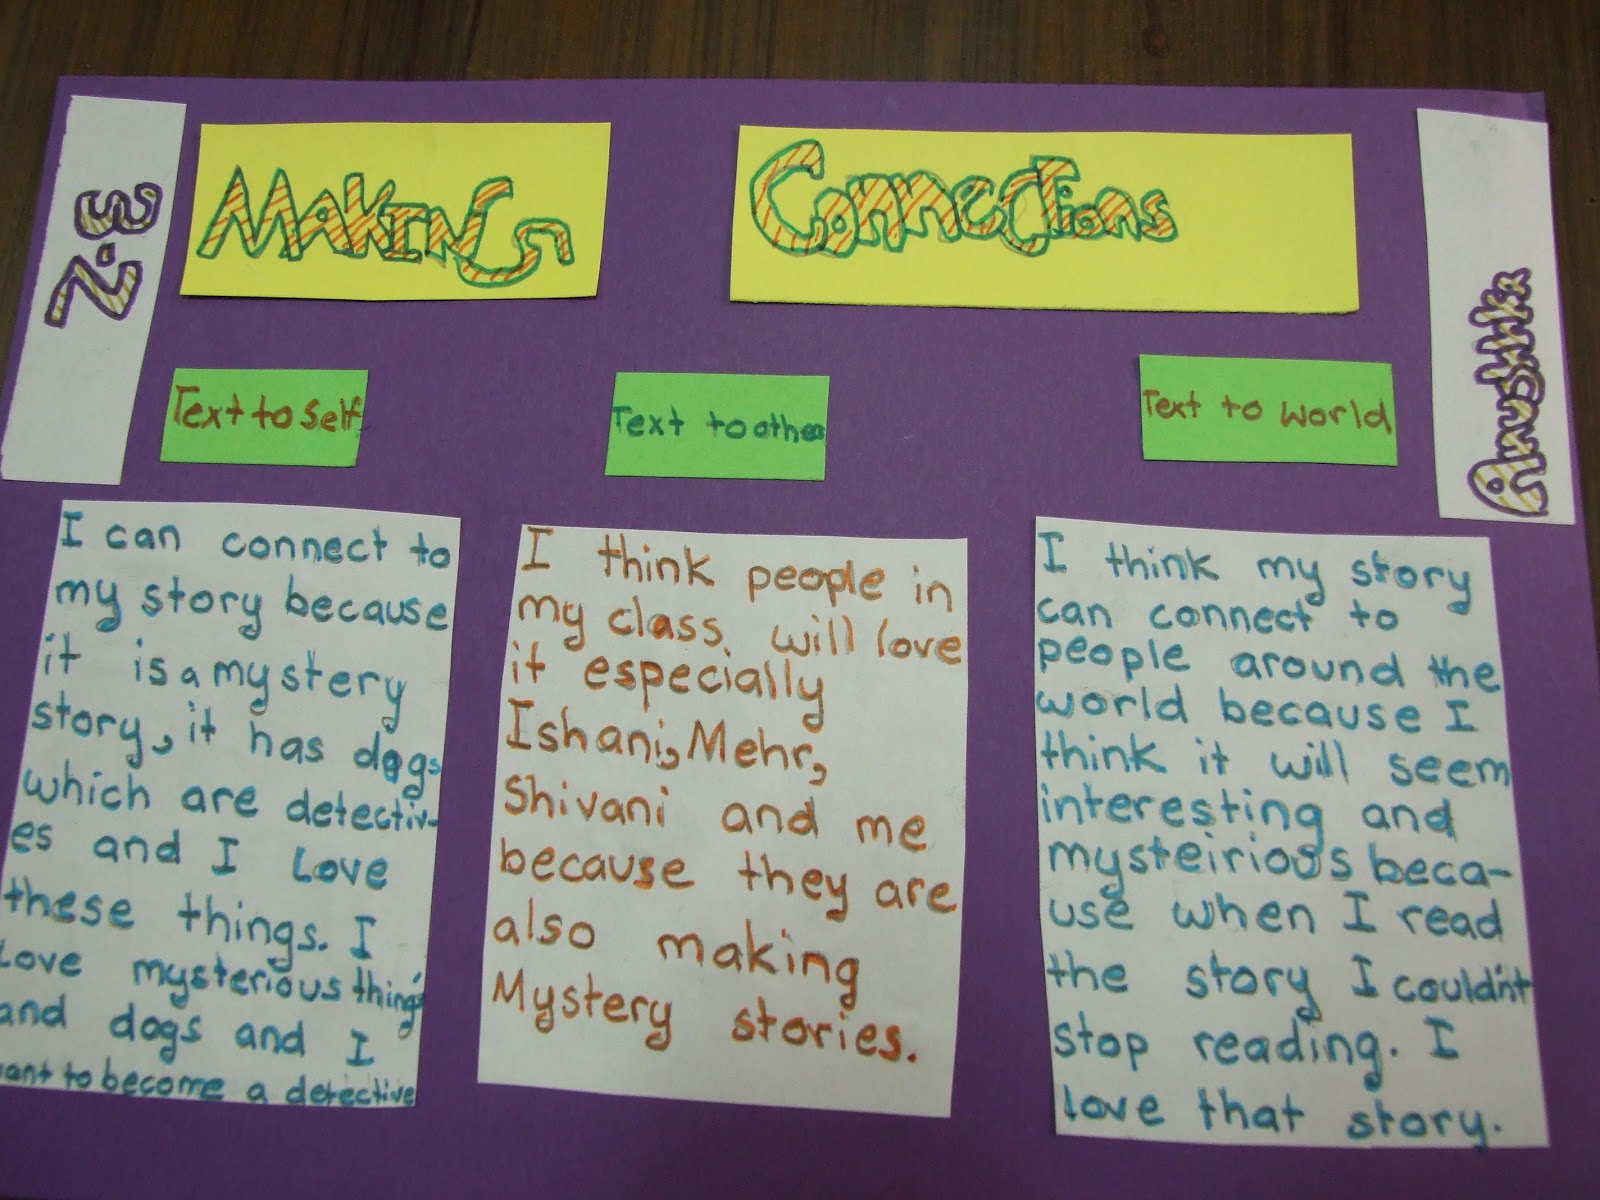 Making Connections
Anushka
Text to Self
I can connect to
my story because
it is a mystery
story, it has dogs
which are detectiv-
es and I Love
these things. I
Love mysterious things
and dogs and I
ant to become a detective
Text to othe
I think people in
my class will love
it especially
Ishani, Mehr,
Shivani and me
because they are
also making
Mystery stories.
Text to world
I think my story
can connect to
people around the
world because I
think it will seem
interesting and
mysteirious beca-
use when I read
the story I couldn't
stop reading. I
Love that story.